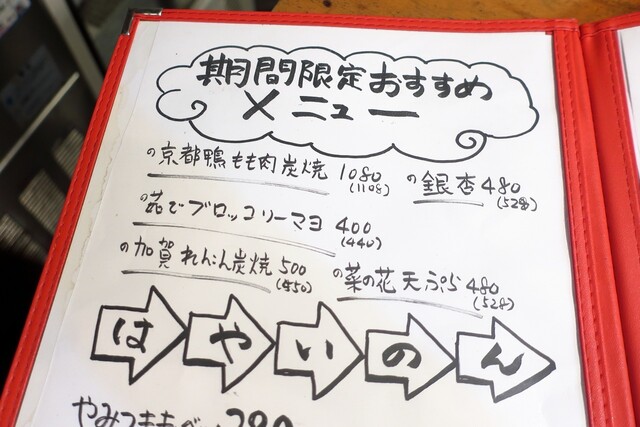 期間限定おすすめ
メニュー
京都鴨もも肉炭焼 1080
(1108)
銀杏 480
(528)
茹でブロッコリーマヨ 400
(440)
加賀れんこん炭焼 500
(550)
菜の花天ぷら 480
(528)
はやいのん
やみつき